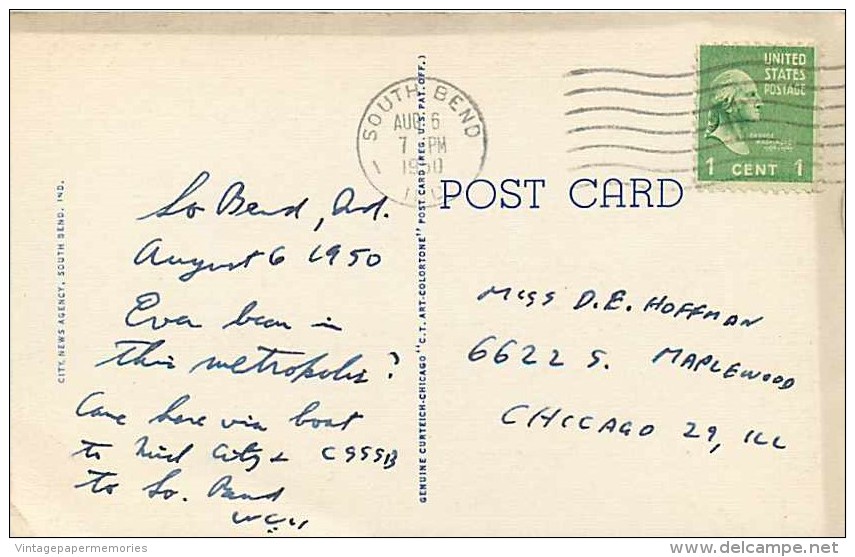 SOUTH BEND
AUG 6
7 PM
1950
UNITED
STATES
POSTAGE
1 CENT 1
POST CARD
CITY NEWS AGENCY, SOUTH BEND, IND.
GENUINE CURTEICH-CHICAGO "C.T. ART-COLORTONE" POST CARD (REG. U.S. PAT. OFF.)
So Bend, Ind.
August 6 1950
Ever been in
this metropolis?
Came here via boat
to Mich City & CSSSB
to So. Bend
Miss D.E. HOFFMAN
6622 S. MAPLEWOOD
CHICAGO 29, ILL
Vintagepapermemories
www.delcampe.net